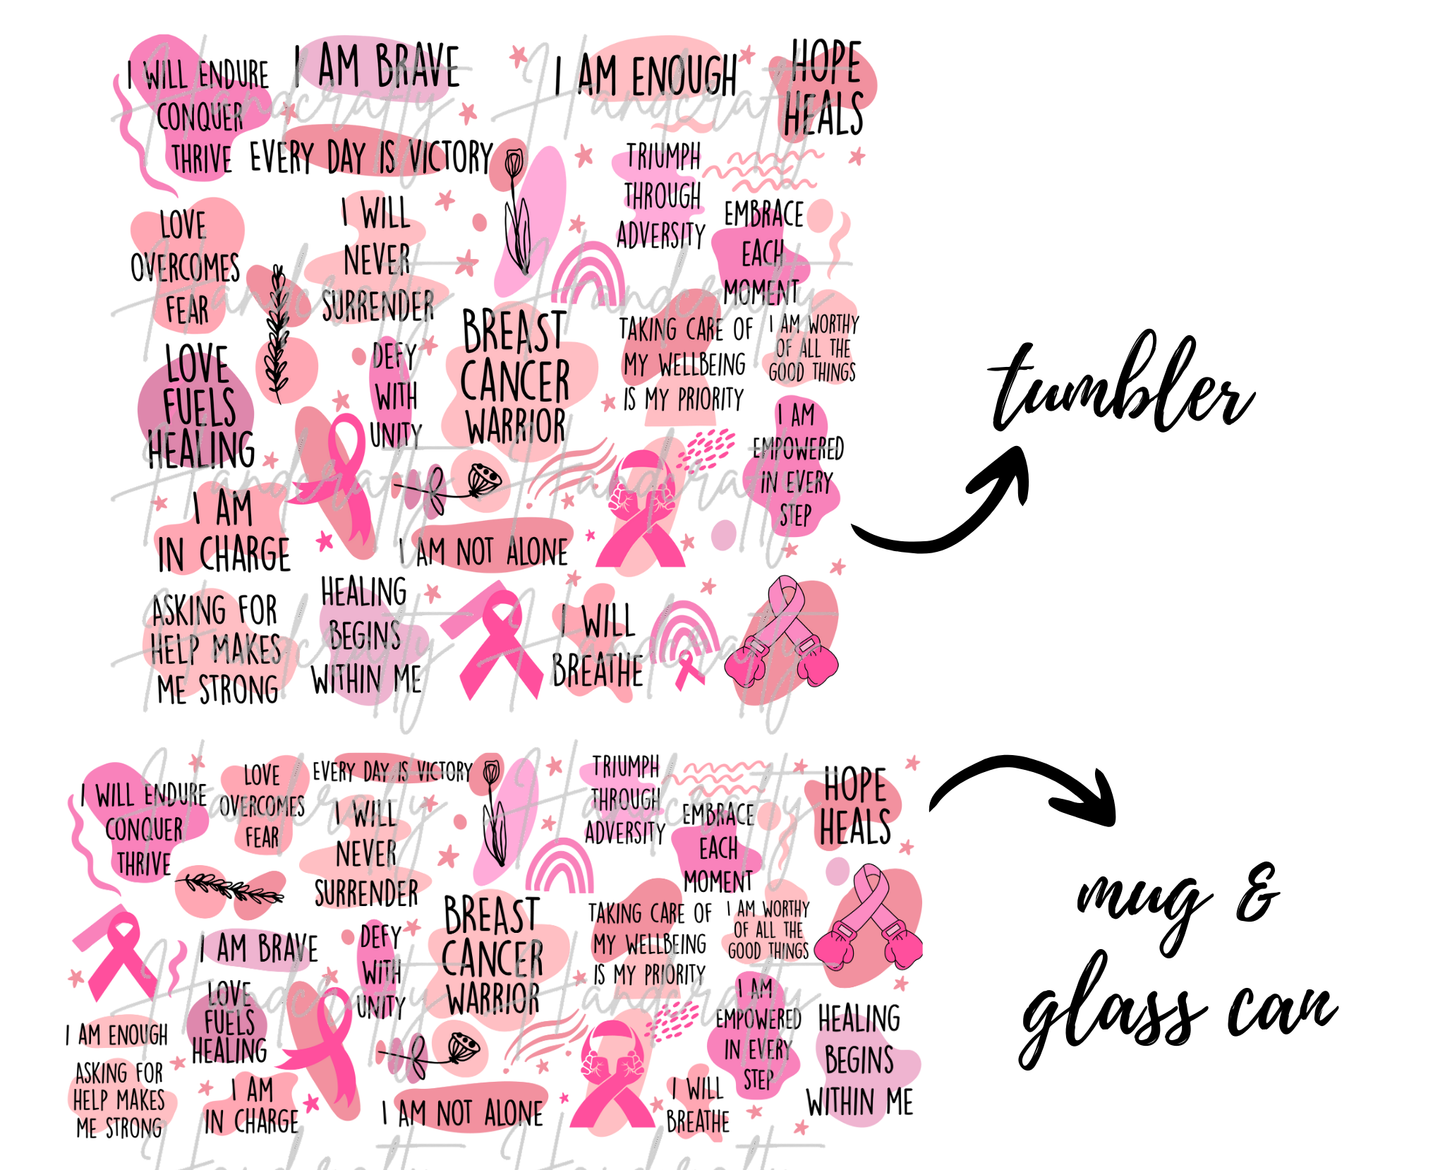 I WILL ENDURE
CONQUER
THRIVE
I AM BRAVE
I AM ENOUGH
HOPE
HEALS
EVERY DAY IS VICTORY
TRIUMPH
THROUGH
ADVERSITY
EMBRACE
EACH
MOMENT
LOVE
OVERCOMES
FEAR
I WILL
NEVER
SURRENDER
BREAST
CANCER
WARRIOR
TAKING CARE OF
MY WELLBEING
IS MY PRIORITY
I AM WORTHY
OF ALL THE
GOOD THINGS
LOVE
FUELS
HEALING
DEFY
WITH
UNITY
I AM
EMPOWERED
IN EVERY
STEP
I AM
IN CHARGE
I AM NOT ALONE
ASKING FOR
HELP MAKES
ME STRONG
HEALING
BEGINS
WITHIN ME
I WILL
BREATHE
tumbler
I WILL ENDURE
CONQUER
THRIVE
LOVE
OVERCOMES
FEAR
EVERY DAY IS VICTORY
I WILL
NEVER
SURRENDER
TRIUMPH
THROUGH
ADVERSITY
EMBRACE
EACH
MOMENT
HOPE
HEALS
I AM BRAVE
DEFY
WITH
UNITY
BREAST
CANCER
WARRIOR
TAKING CARE OF
MY WELLBEING
IS MY PRIORITY
I AM WORTHY
OF ALL THE
GOOD THINGS
I AM ENOUGH
LOVE
FUELS
HEALING
I AM
EMPOWERED
IN EVERY
STEP
HEALING
BEGINS
WITHIN ME
ASKING FOR
HELP MAKES
ME STRONG
I AM
IN CHARGE
I AM NOT ALONE
I WILL
BREATHE
mug &
glass can
Handcrafty
Handcrafty
Handcrafty
Handcrafty
Handcrafty
Handcrafty
Handcrafty
Handcrafty
Handcrafty
Handcrafty
Handcrafty
Handcrafty
Handcrafty
Handcrafty